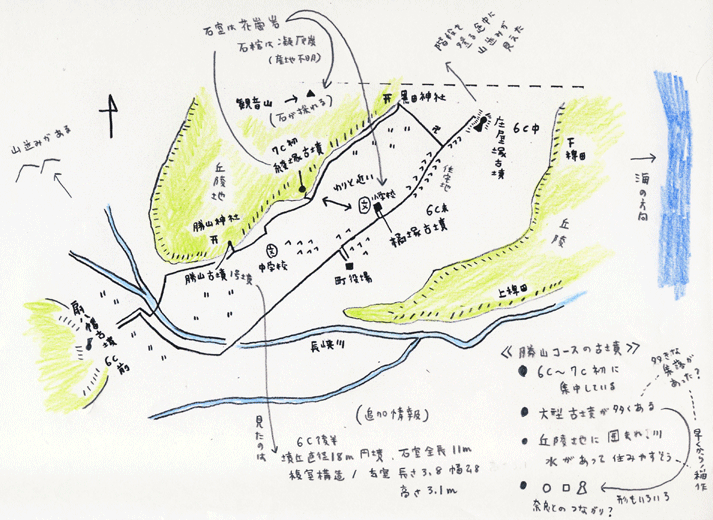 石室は花崗岩
石棺は凝灰岩
(産地不明)
階段を
登る途中に
山並みが
見えた
観音山
(石が採れる)
黒田神社
7C初
綾塚古墳
庄屋塚古墳
6C中
下稗田
山並みがある
丘陵地
わりと近い
文
小学校
住宅地
海の方向
勝山神社
6C末
橘塚古墳
丘陵
文
中学校
勝山古墳1号墳
町役場
上稗田
扇八幡古墳
6C前
長峡川
《勝山コースの古墳》
6C〜7C初に
集中している
大きな
集落が
あった?
大型古墳が多くある
丘陵地に囲まれ、川
水があって住みやすそう
早くから稲作
形もいろいろ
奈良とのつながり?
(追加情報)
見たのは
6C後半
墳丘直径18m円墳、石室全長11m
複室構造/玄室長さ3.8幅2.8
高さ3.1m